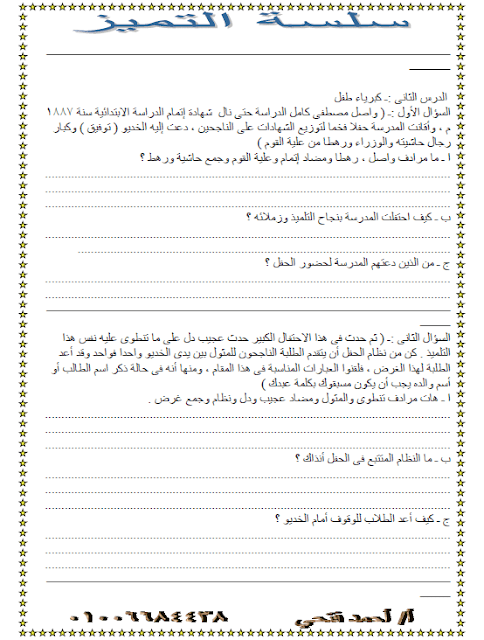 سلسلة التميز
الدرس الثانى :ـ كبرياء طفل
السؤال الأول :ـ ( واصل مصطفى كامل الدراسة حتى نال شهادة إتمام الدراسة الابتدائية سنة ١٨٨٧
م ، وأقامت المدرسة حفلا فخما لتوزيع الشهادات على الناجحين ، دعت إليه الخديو ( توفيق ) وكبار
رجال حاشيته والوزراء ورهطا من علية القوم )
ا ـ ما مرادف واصل ، رهطا ومضاد إتمام وعلية القوم وجمع حاشية ورهط ؟
ب ـ كيف احتفلت المدرسة بنجاح التلميذ وزملائه ؟
ج ـ من الذين دعتهم المدرسة لحضور الحفل ؟
السؤال الثانى :ـ ( ثم حدث فى هذا الاحتفال الكبير حدث عجيب دل على ما تنطوى عليه نفس هذا
التلميذ . كن من نظام الحفل أن يتقدم الطلبة الناجحون للمثول بين يدى الخديو واحدا فواحد وقد أعد
الطلبة لهذا الغرض ، فلقنوا العبارات المناسبة فى هذا المقام ، ومنها أنه فى حالة ذكر اسم الطالب أو
أسم والده يجب أن يكون مسبقوك بكلمة عبدك )
ا ـ هات مرادف تنطوى والمثول ومضاد عجيب ودل ونظام وجمع غرض .
ب ـ ما النظام المتتبع فى الحفل أنذاك ؟
ج ـ كيف أعد الطلاب للوقوف أمام الخديو ؟
أ/ أحمد فتحي ٠١٠٠٦٦٨٤٤٣٨